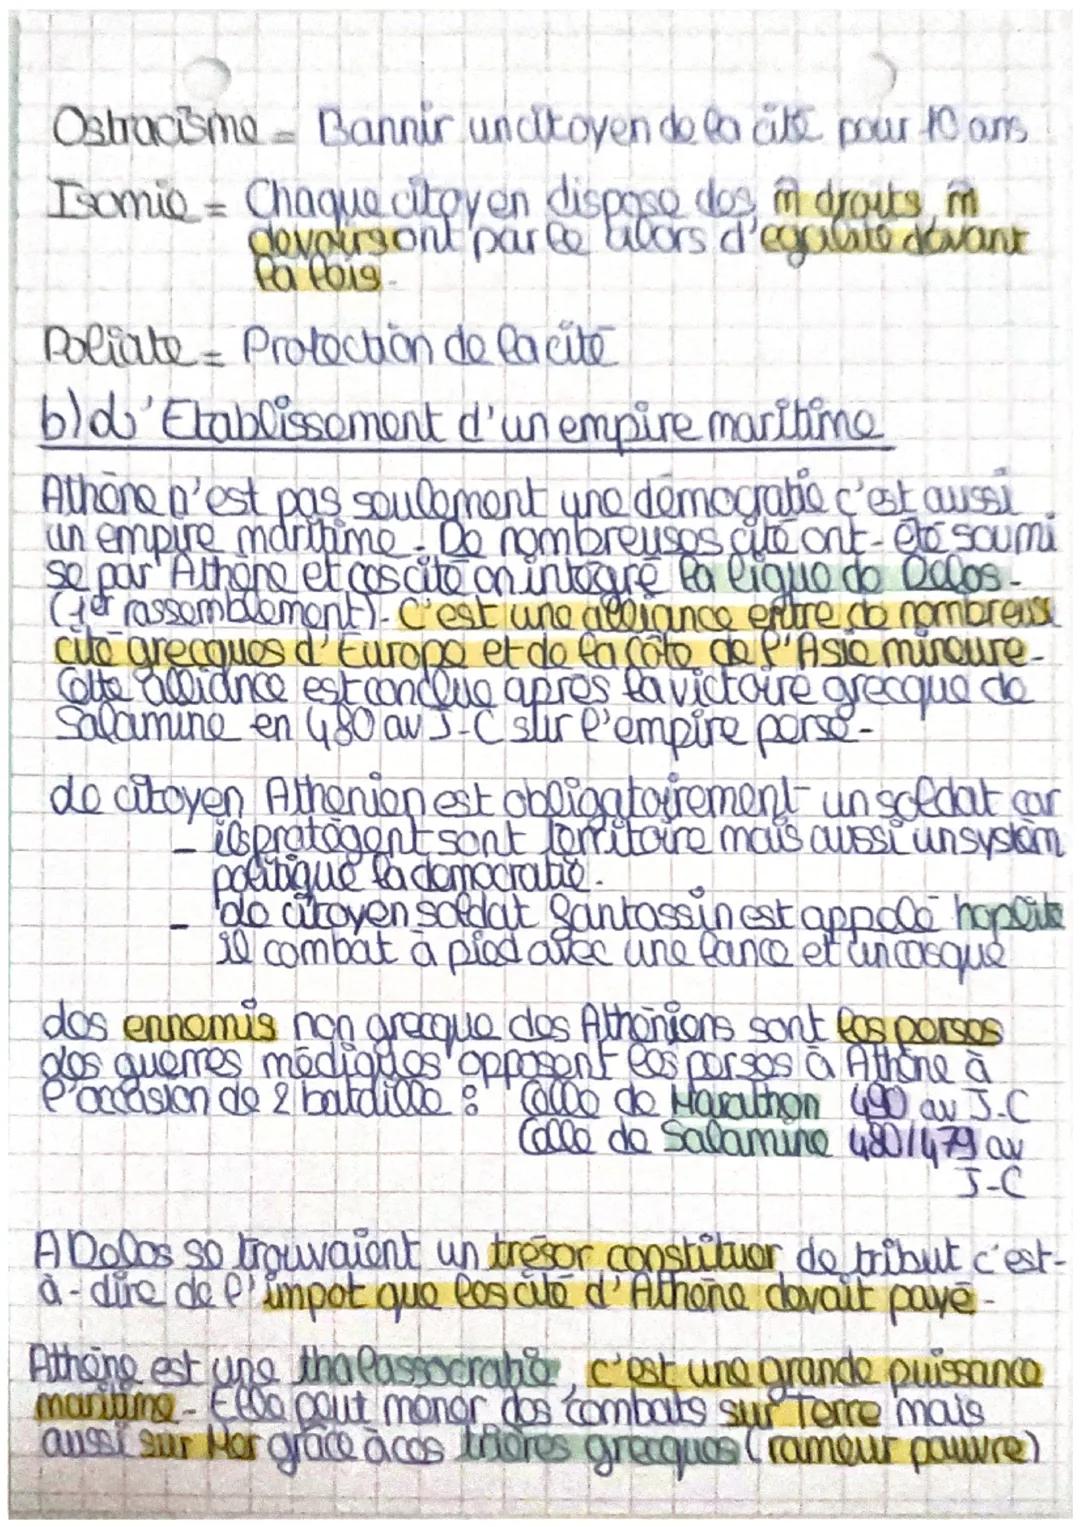 Ostracisme = Bannir un citoyen de la cité pour 10 ans
Isomie = Chaque citoyen dispose des m̂ droits, m̂
devoirs ont parle alors d'égalité devant
la lois.
Poliate = Protection de la cité
b) L'Etablissement d'un empire maritime
Athène n'est pas seulement une démocratie c'est aussi
un empire maritime. De nombreuses cité ont-été soumi
se par Athène et ces cité on intégré la ligue de Delos.
(1er rassemblement). C'est une alliance entre de nombreuse
cité grecques d'Europe et de la côte de l'Asie mineure.
Cette alliance est conclue apres la victoire grecque de
Salamine en 480 av J-C sur l'empire perse.
Le citoyen Athenien est obligatoirement un soldat car
- ils protègent sont territoire mais aussi un systèm
politique la democratie.
- Le citoyen soldat fantassin est appelé hoplite
il combat à pied avec une lance et un casque
Les ennemis non grecque des Athéniens sont les perses
Les guerres médiques opposent les perses à Athène à
l'occasion de 2 bataille : Celle de Marathon 490 av J-C
Celle de Salamine 480/479 av
J-C
A Delos se trouvaient un trésor constituer de tribut c'est-
à-dire de l'impot que les cité d'Athène devait payé.
Athène est une thalassocratie, c'est une grande puissance
maritime. Elle peut mener des combats sur Terre mais
aussi sur Mer grâce à ces trières grecques (rameur pauvre)